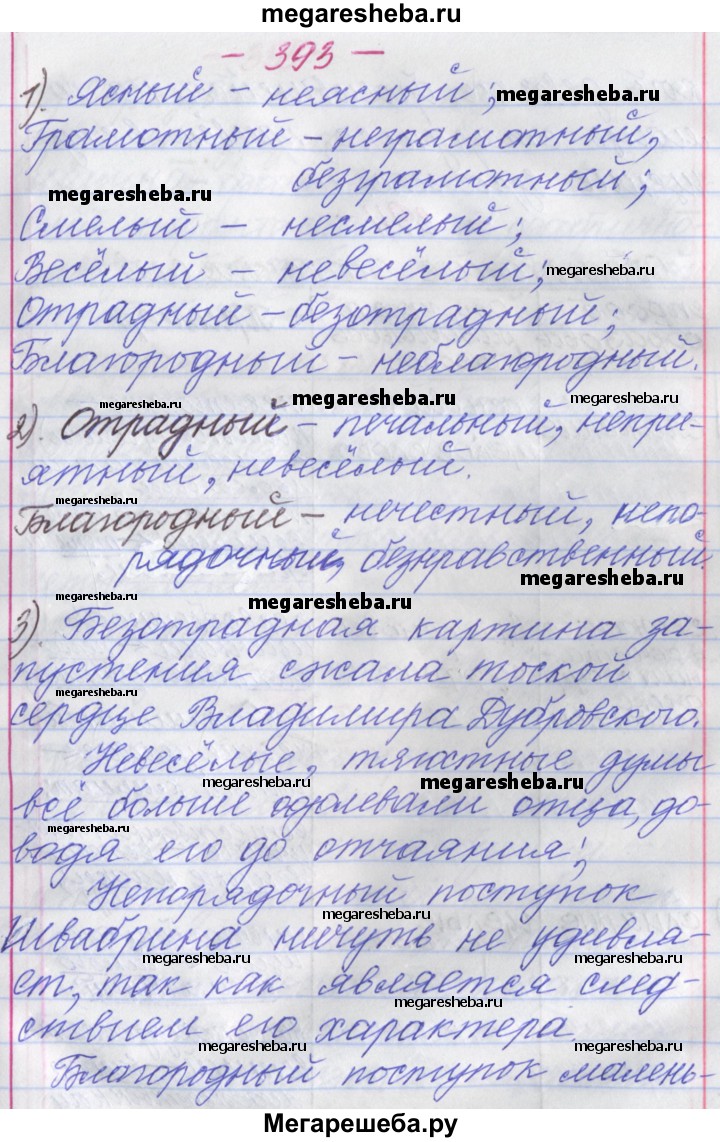 megaresheba.ru
- 393 -
1). Ясный - неясный; megaresheba.ru
Грамотный - неграмотный,
безграмотный;
megaresheba.ru
Смелый - несмелый;
Весёлый - невесёлый; megaresheba.ru
Отрадный - безотрадный;
Благородный - неблагородный.
megaresheba.ru megaresheba.ru megaresheba.ru
2). Отрадный - печальный, непри-
ятный, невесёлый.
megaresheba.ru megaresheba.ru
Благородный - нечестный, непо-
рядочный, безнравственный.
megaresheba.ru
megaresheba.ru megaresheba.ru
3). Безотрадная картина за-
пустения сжала тоской
megaresheba.ru
сердце Владимира Дубровского.
Невесёлые, тягостные думы
megaresheba.ru megaresheba.ru
всё больше одолевали отца, до-
megaresheba.ru
водя его до отчаяния;
Непорядочный поступок
megaresheba.ru
Швабрина ничуть не удивля-
megaresheba.ru megaresheba.ru
ет, так как является след-
megaresheba.ru
ствием его характера
megaresheba.ru megaresheba.ru
Благородный поступок малень-
Мегарешеба.ру